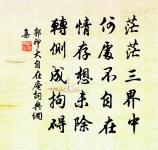 茫茫三界中
何處不自在
情存想未除
轉側成拘礙
郭印大自在庵詞典網
集